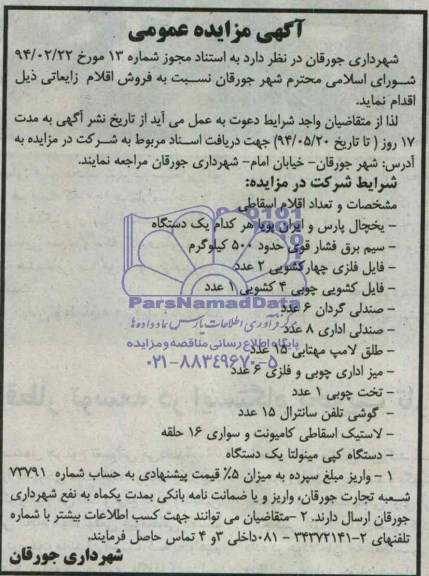 آگهی مزایده عمومی
شهرداری جورقان در نظر دارد به استناد مجوز شماره ۱۳ مورخ ۹۴/۰۲/۲۲
شورای اسلامی محترم شهر جورقان نسبت به فروش اقلام زایعاتی ذیل
اقدام نماید.
لذا از متقاضیان واجد شرایط دعوت به عمل می آید از تاریخ نشر آگهی به مدت
۱۷ روز ( تا تاریخ ۹۴/۰۵/۲۰) جهت دریافت اسناد مربوط به شرکت در مزایده به
آدرس: شهر جورقان- خیابان امام- شهرداری جورقان مراجعه نمایند.
شرایط شرکت در مزایده:
مشخصات و تعداد اقلام اسقاطی
- یخچال پارس و ایران پویا هر کدام یک دستگاه
- سیم برق فشار قوی حدود ۵۰۰ کیلوگرم
- فایل فلزی چهارکشویی ۲ عدد
- فایل کشویی چوبی ۴ کشویی ۱ عدد
ParsNamadData
- صندلی گردان ۶ عدد
مرکز فرآوری اطلاعات پارس نماد داده ها
- صندلی اداری ۸ عدد
پایگاه اطلاع رسانی مناقصه و مزایده
- طلق لامپ مهتابی ۱۵ عدد
۰۲۱-۸۸۳۴۹۶۷۰-۵
- میز اداری چوبی و فلزی ۶ عدد
- تخت چوبی ۱ عدد
- گوشی تلفن سانترال ۱۵ عدد
- لاستیک اسقاطی کامیونت و سواری ۱۶ حلقه
- دستگاه کپی مینولتا یک دستگاه
۱ - واریز مبلغ سپرده به میزان ۵٪ قیمت پیشنهادی به حساب شماره ۷۳۷۹۱
شعبه تجارت جورقان، واریز و یا ضمانت نامه بانکی بمدت یکماه به نفع شهرداری
جورقان ارسال دارند. ۲ -متقاضیان می توانند جهت کسب اطلاعات بیشتر با شماره
تلفنهای ۲-۳۴۳۷۲۱۴۱ -۰۸۱داخلی ۳و ۴ تماس حاصل فرمایند.
شهرداری جورقان